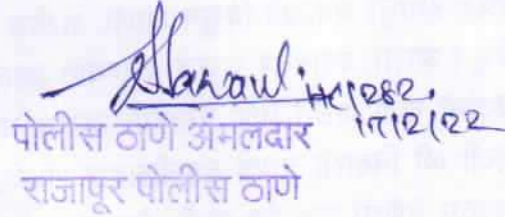 HC/282.
17/2/22
पोलीस ठाणे अंमलदार
राजापूर पोलीस ठाणे